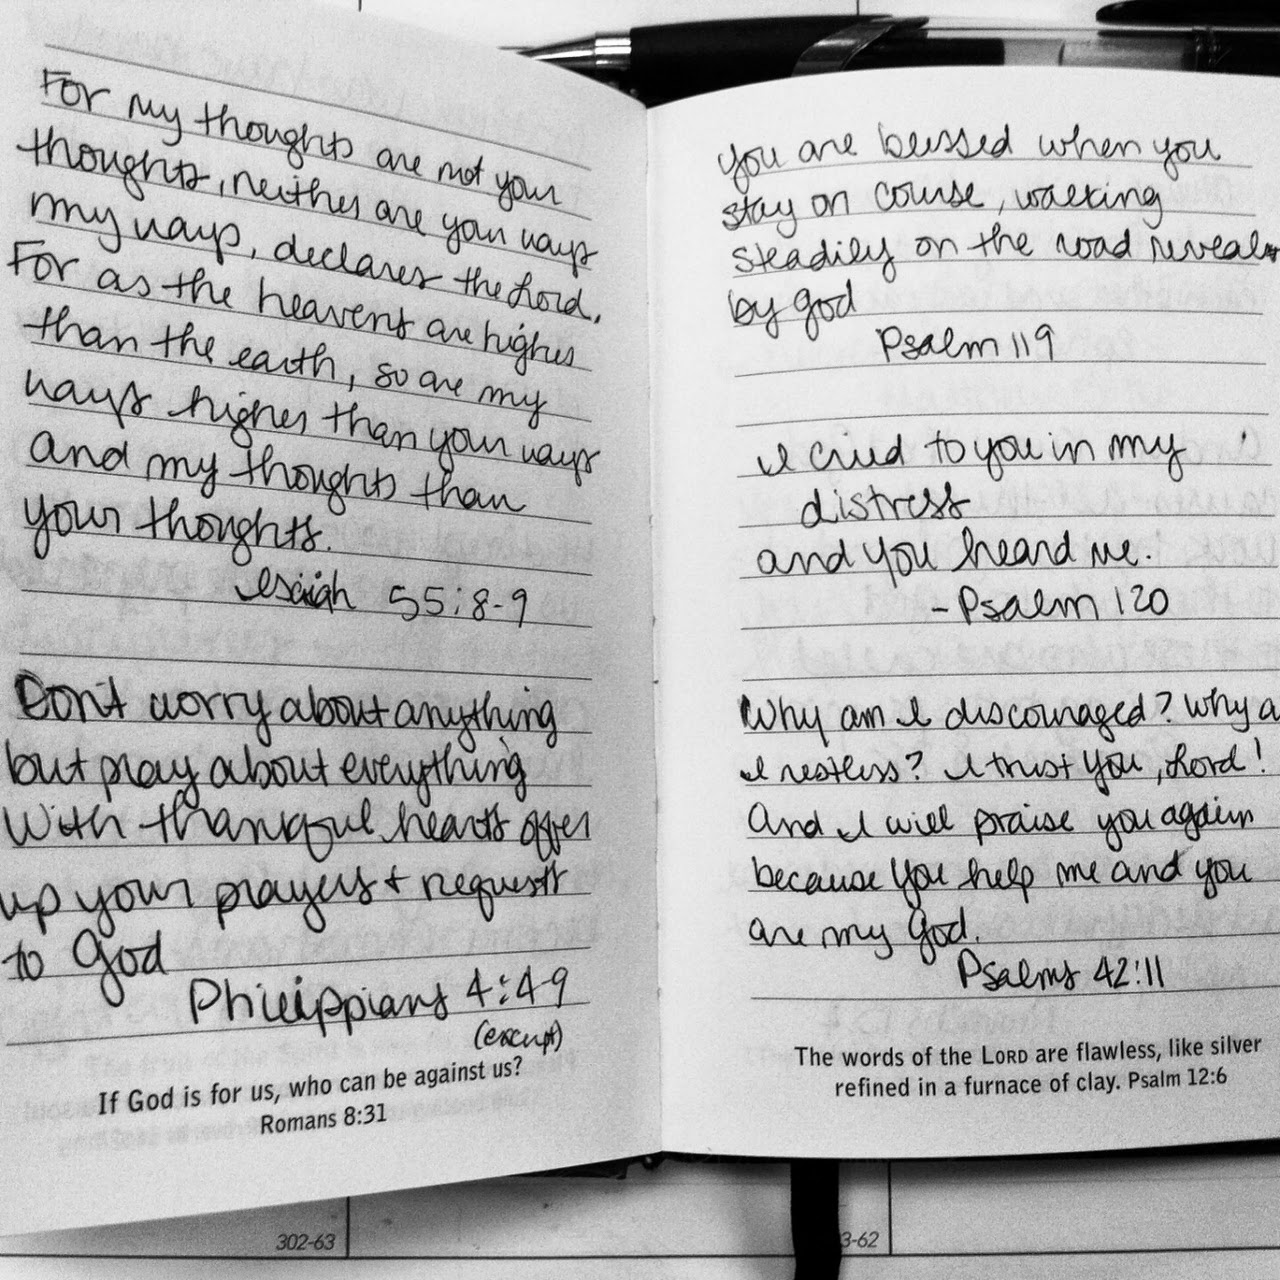 For my thoughts are not your
thoughts, neither are your ways
my ways, declares the Lord.
For as the heavens are higher
than the earth, so are my
ways higher than your ways
and my thoughts than
your thoughts.
Isaiah 55:8-9
Don't worry about anything
but pray about everything
With thankful hearts offer
up your prayers + requests
to God
Philippians 4:4-9
(excerpt)
If God is for us, who can be against us?
Romans 8:31
you are blessed when you
stay on course, walking
steadily on the road
by god
Psalm 119
I cried to you in my
distress
and you heard me.
- Psalm 120
Why am I discouraged? Why
I restless? I trust you, Lord!
And I will praise you again
because you help me and you
are my God.
Psalms 42:11
The words of the LORD are flawless, like silver
refined in a furnace of clay. Psalm 12:6
302-63
3-62